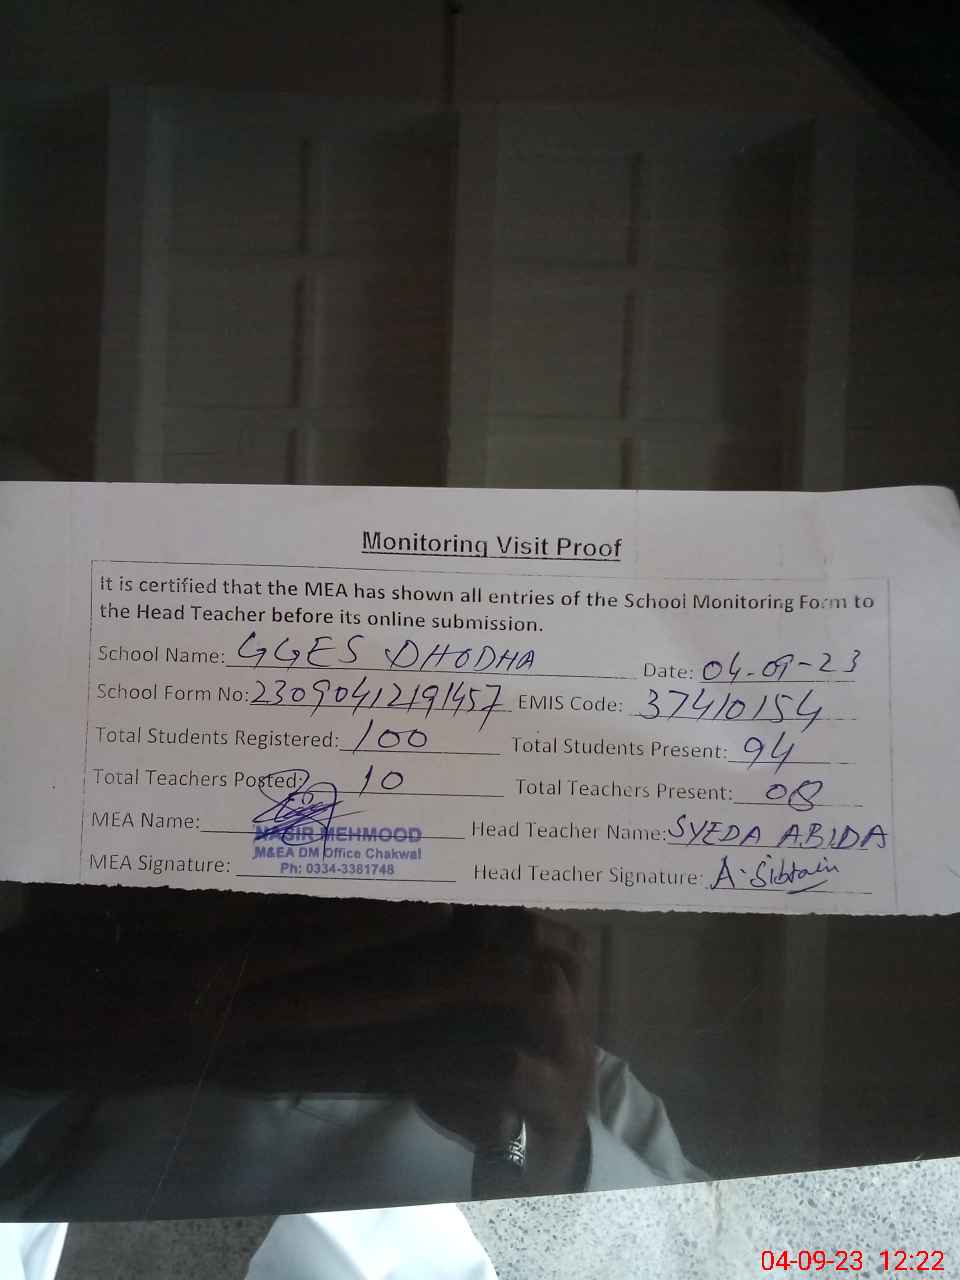 Monitoring Visit Proof
It is certified that the MEA has shown all entries of the School Monitoring Form to
the Head Teacher before its online submission.
School Name: GGES DHODHA Date: 04-09-23
School Form No: 23090412191457 EMIS Code: 37410154
Total Students Registered: 100 Total Students Present: 94
Total Teachers Posted: 10 Total Teachers Present: 08
MEA Name: NASIR MEHMOOD Head Teacher Name: SYEDA ABIDA
M&EA DM Office Chakwal
MEA Signature: Ph: 0334-3381748 Head Teacher Signature: A. Sibtain
04-09-23 12:22